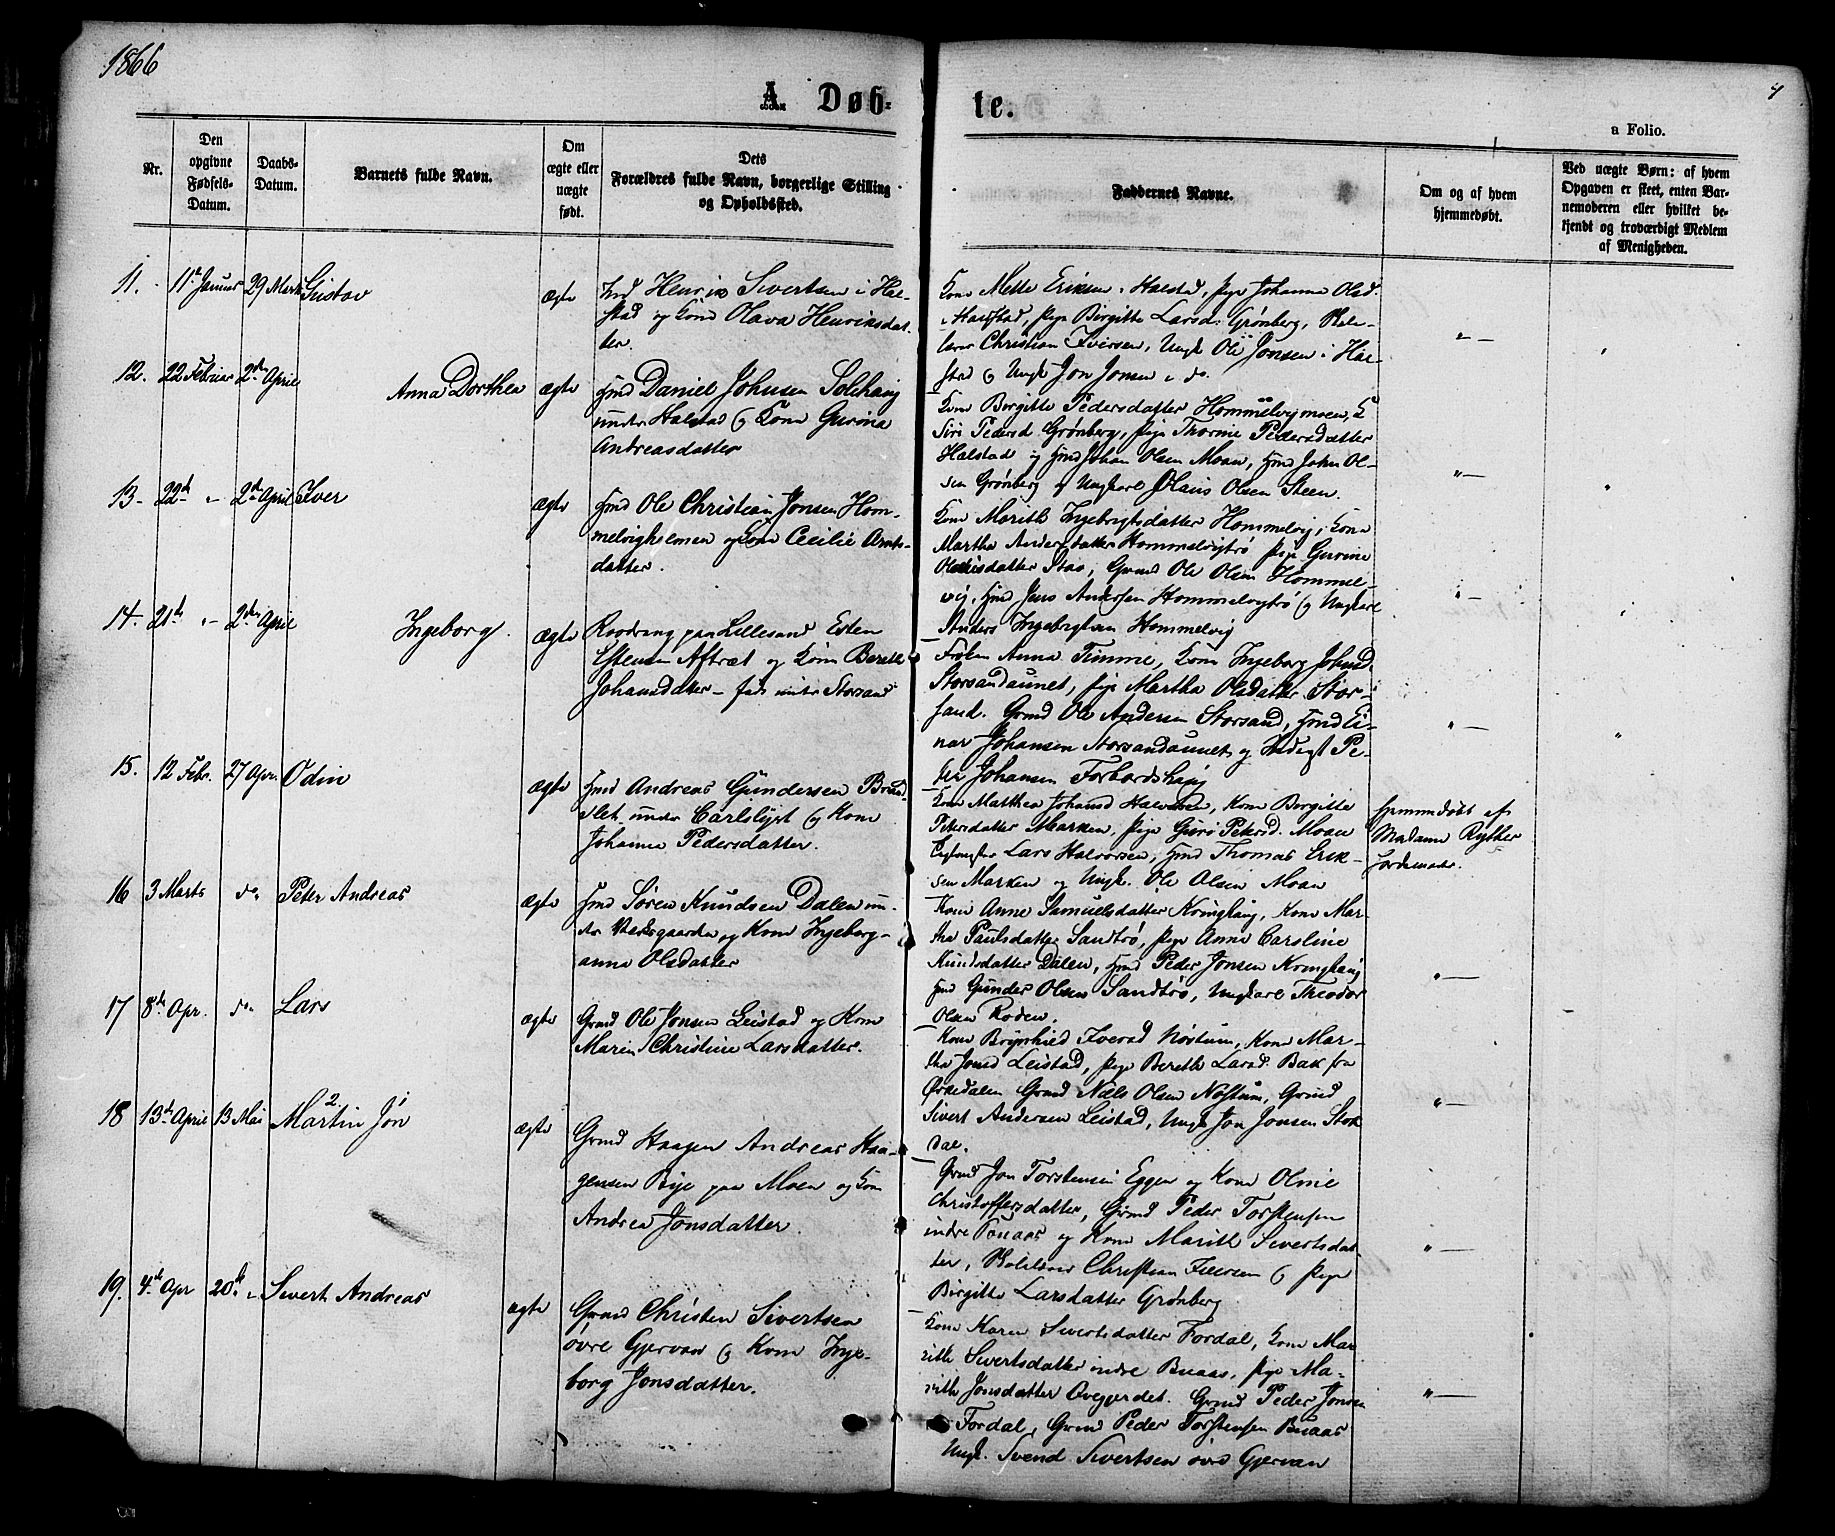 1866
4
A. Døb-
te.
a Folio.
Nr.
Den
opgivne
Fødsels-
Datum.
Daabs-
Datum.
Barnets fulde Navn.
Om
ægte eller
uægte
født.
Dets
Forældres fulde Navn, borgerlige Stilling
og Opholdssted.
Faddernes Navne.
Om og af hvem
hjemmedøbt.
Ved uægte Børn: af hvem
Opgaven er skeet, enten Bar-
nemoderen eller hvilket be-
kjendt og troværdigt Medlem
af Menigheden.
11. 11te Januar 29 Marts Gustav ægte
Ind Henrik Sivertsen i Hal-
stad og Kone Olava Henriksdat-
ter.
Kone Mette Eriksen Halstad, pige Johanna Olsd.
Halstad, pige Birgitte Larsd. Grønberg, Skole-
lærer Christian Iversen, Ungk Ole Jonsen i Hal-
stad og Ungk Jon Jonsen i do.
" —
12. 22 Februar 2den April Anna Dorthea ægte
Hmd Daniel Johnsen Solehaug
under Halstad og Kone Gurina
Andreasdatter
Kone Birgitte Pedersdatter Hommelvigmoen, K
Siri Pedersd Grønberg, pige Thorine Pedersdatter
Halstad og Hmd Johan Olsen Moan, Hmd John Ol-
sen Grønberg og Ungkarl Olaus Olsen Steen.
" —
13. 22de " 2den April Iver ægte
Hmd Ole Christian Jonsen Hom-
melvighemen og Kone Cecilie Arnts-
datter.
Kone Marith Ingebrigtsdatter Hommelvig, Kone
Martha Andersdatter Hommelvigtrø pige Gurine
datter Stav, Gmd Ole Olsen Hommel-
vig, Hmd Jens Andersen Hommelvigtrø og Ungkarl
Anders Ingebrigtsen Hommelvig
" —
14. 21de " 2den April Ingeborg. ægte
paa Lillesand Esten
Estensen Aftret og Kone Bereth
Johansdatter — under Storsand
Frøken Anna Timme, Kone Ingeborg Johnsd.
Storsandaunet, pige Martha Olsdatter Stor-
sand. Gmd Ole Andersen Storsand, Hmd Ei-
nar Johansen Storsandaunet og Inderst Pe-
ter Johansen Forbordshaug
" —
15. 12 Febr. 27 Apr. Odin ægte
Hmd Andreas Gundersen
slet under Carlslyst og Kone
Johanna Pedersdatter.
Kone Matthea Johansd Halvorsen, Kone Birgitte
Petersdatter Marken, pige Guro Petersd. Moan
Lars Halvorsen, Hmd Thomas Erik-
sen Marken og Ungk. Ole Olsen Moan
Hjemmedøbt af
Madame Rytter
Jordemoder.
16 3 Marts do. Peter Andreas ægte
Hmd Søren Knudsen Dalen un-
der og Kone Ingeborg-
anna Olsdatter
Kone Anne Samuelsdatter Kringhaug, Kone Mar-
tha Paulsdatter Sandtrø, pige Anne Caroline
Knudsdatter Dalen, Hmd Peder Jonsen Kringhaug
Hmd Gunder Olsen Sandtrø, Ungkarl Theodor
Olsen Roden.
" —
17 8de Apr. do. Lars ægte
Gmd Ole Jonsen Leistad og Kone
Marie Christine Larsdatter.
Kone Brynhild Iversd Nøstum, Kone Mar-
tha Jonsd Leistad, pige Bereth Larsd. Bak fra
Ørkedalen Gmd Niels Olsen Nøstum, Gmd
Sivert Andersen Leistad, Ungk Jon Jonsen Stok-
dal.
" —
18 13de April 13 Mai Martin Jøn ægte
2
Gmd Haagen Andreas Haa-
gensen Bye paa Moen og Kone
Andrea Jonsdatter.
Gmd Jon Torstensen Eggen og Kone Oline
Christoffersdatter, Gmd Peder Torstensen
indre Buaas og Kone Marith Sivertsdat-
ter, Skolelærer Christian Iversen og pige
Birgitte Larsdatter Grønberg
" —
19. 4de Apr 20de " Sivert Andreas ægte
Gmd Christen Sivertsen
øvre Gjervan og Kone Inge-
borg Jonsdatter.
Kone Karen Sivertsdatter Fordal, Kone Mar-
rith Sivertsdatter indre Buaas, pige Ma-
rith Jonsdatter Ovegjerdet. Gmd Peder Jonsen
Fordal, Gmd Peder Torstensen Buaas
Ungk. Svend Sivertsen øvre Gjervan
" —